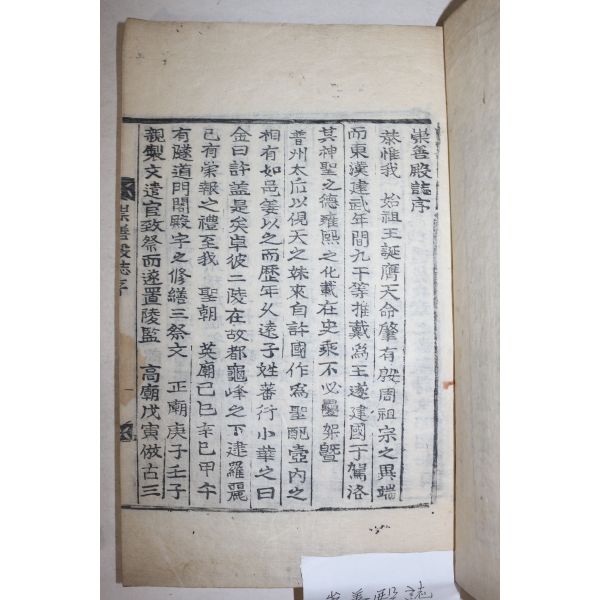 崇善殿誌序
恭惟我 始祖王誕膺天命肇有殷周祖宗之異端
而東漢建武年間九干等推戴爲王遂建國于駕洛
其神聖之德雍熙之化載在史乘不必疊架曁
普州太后以俔天之妹來自許國作爲聖配壼內之
相有如邑姜以之而歷年久遠子姓蕃衍小華之曰
金曰許盖是矣卓彼二陵在故都龜峰之下逮羅麗
已有崇報之禮至我 聖朝 英廟己巳辛巳甲午
有隧道門閣殿宇之修繕三祭文 正廟庚子壬子
親製文遣官致祭而遂置陵監 高廟戊寅倣古三
崇善殿誌序
一